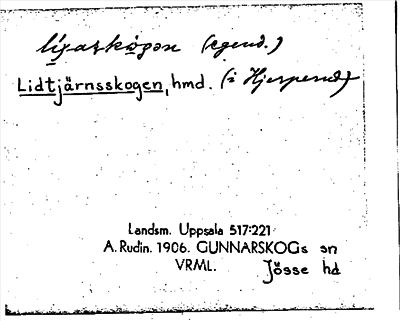 (egend.)
Lidtjärnsskogen, hmd. (i Hjerpered)
Landsm. Uppsala 517:221
A. Rudin. 1906. GUNNARSKOGs sn
VRML. Jösse hd